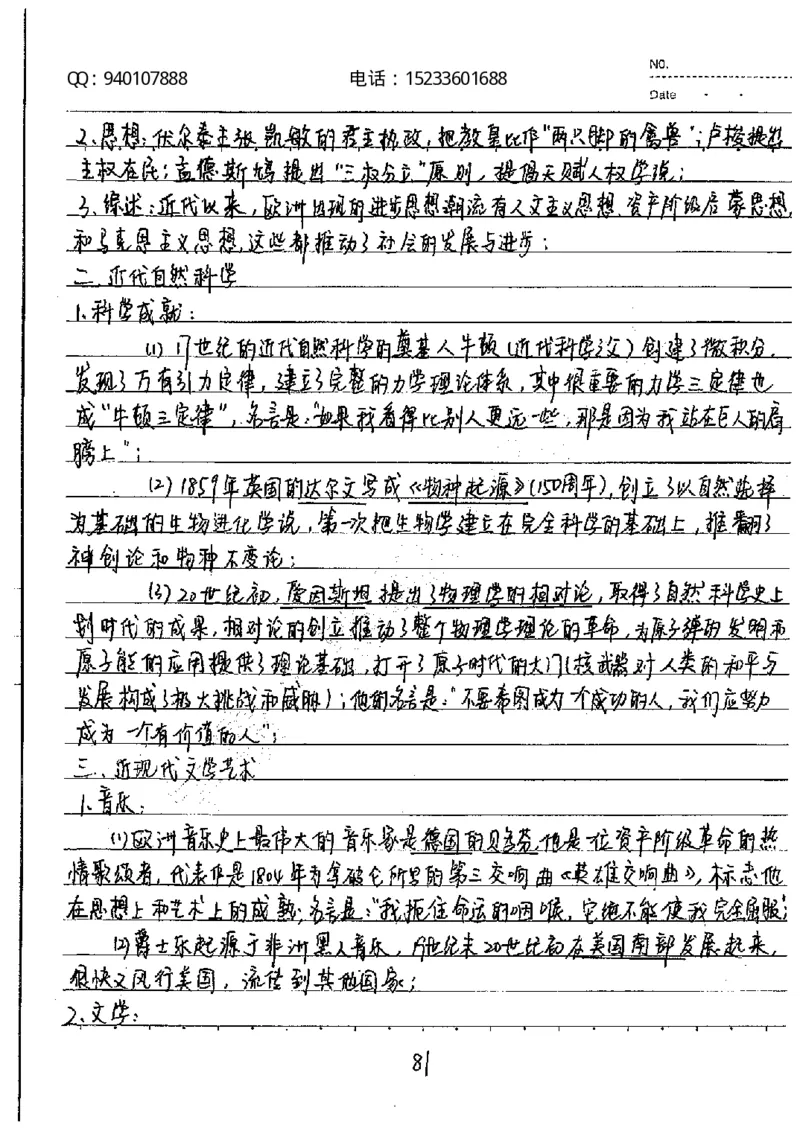 NO.
QQ：940107888 电话：15233601688
Date
2、思想：伏尔泰主张凯敏的君主执政，把教皇比作"两只脚的禽兽"；卢梭提倡
主权在民；孟德斯鸠提出"三权分立"原则，提倡天赋人权学说；
3、综述：近代以来，欧洲出现的进步思想潮流有人文主义思想、资产阶级启蒙思想，
和马克思主义思想，这些都推动了社会的发展与进步；
二、近代自然科学
1、科学成就：
(1) 17世纪的近代自然科学的奠基人牛顿（近代科学之父）创建了微积分，
发现了万有引力定律，建立了完整的力学理论体系，其中很重要的力学三定律也
成"牛顿三定律"，名言是："如果我看得比别人更远一些，那是因为我站在巨人的肩
膀上"；
(2) 1859年英国的达尔文写成《物种起源》(150周年)，创立了以自然选择
为基础的生物进化学说，第一次把生物学建立在完全科学的基础上，推翻了
神创论和物种不变论；
(3) 20世纪初，爱因斯坦提出了物理学的相对论，取得了自然科学史上
划时代的成果，相对论的创立推动了整个物理学理论的革命，为原子弹的发明和
原子能的应用提供了理论基础，打开了原子时代的大门（核武器对人类的和平与
发展构成了极大挑战和威胁）；他的名言是："不要希图成为一个成功的人，我们应努力
成为一个有价值的人"；
三、近现代文学艺术
1、音乐：
(1)欧洲音乐史上最伟大的音乐家是德国的贝多芬，他是一位资产阶级革命的热
情歌颂者，代表作是1804年为拿破仑所写的第三交响曲《英雄交响曲》，标志他
在思想上和艺术上的成熟；名言是："我扼住命运的咽喉，它绝不能使我完全屈服；
(2)爵士乐起源于非洲黑人音乐，19世纪末20世纪初在美国南部发展起来，
很快又风行美国，流传到其他国家；
2、文学：
81